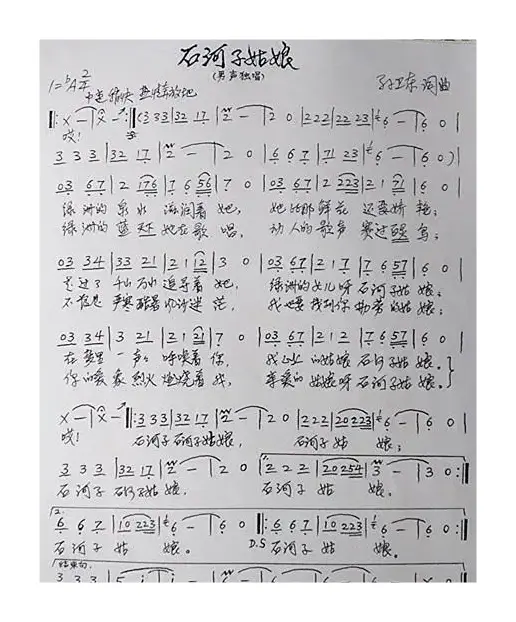 石河子姑娘
(男声独唱)
1=ᵇA 2/4
中速 稍快 热情奔放地
孙卫东 词曲
‖: X — | X → :‖ (3 3 3 | 32 17 | 2 — | 2 0 | 222 | 22 23 | 6 — | 6 0 |
哎!
3 3 3 | 32 17 | 2 — | 2 0 | 6 6 7 | 71 23 | 6 — | 6 0) |
03 67 | 2 176 | 7 6 56 | 7 0 | 03 67 | 2 223 | 2 1 71 | 6 0 |
绿洲的泉水 滋润着她, 她比那鲜花 还要娇艳;
绿洲的蓝天 她在歌唱, 动人的歌声 赛过百灵鸟;
03 34 | 33 21 | 2 1 12 | 3 0 | 03 67 | 2 1 7 | 7 6 57 | 6 0 |
走过了千山万水追寻着她, 绿洲的女儿呀石河子姑娘;
不管是严寒酷暑风沙迷茫, 我也要找到你勤劳的姑娘;
03 34 | 3 21 | 2 1 21 | 7 0 | 03 67 | 2 1 2 | 7 6 57 | 6 0 |
在梦里一声声呼唤着你, 我心上的姑娘石河子姑娘。
你的爱象烈火燃烧着我, 亲爱的姑娘呀石河子姑娘。
X — | X → ‖: 3 3 3 | 32 17 | 2 — | 2 0 | 222 | 20 223 | 6 — | 6 0 |
哎! 石河子石河子姑娘, 石河子姑娘;
3 3 3 | 32 17 | 2 — | 2 0 | 1. 2 2 2 | 20 254 | 3 — | 3 0 :‖
石河子石河子姑娘, 石河子姑娘.
2. 6 6 7 | 10 223 | 6 — | 6 0 ‖: 6 6 7 | 10 223 | 6 — | 6 0 :‖
石河子姑娘。 D.S 石河子姑娘。
结束句.
3 3 3 | 5